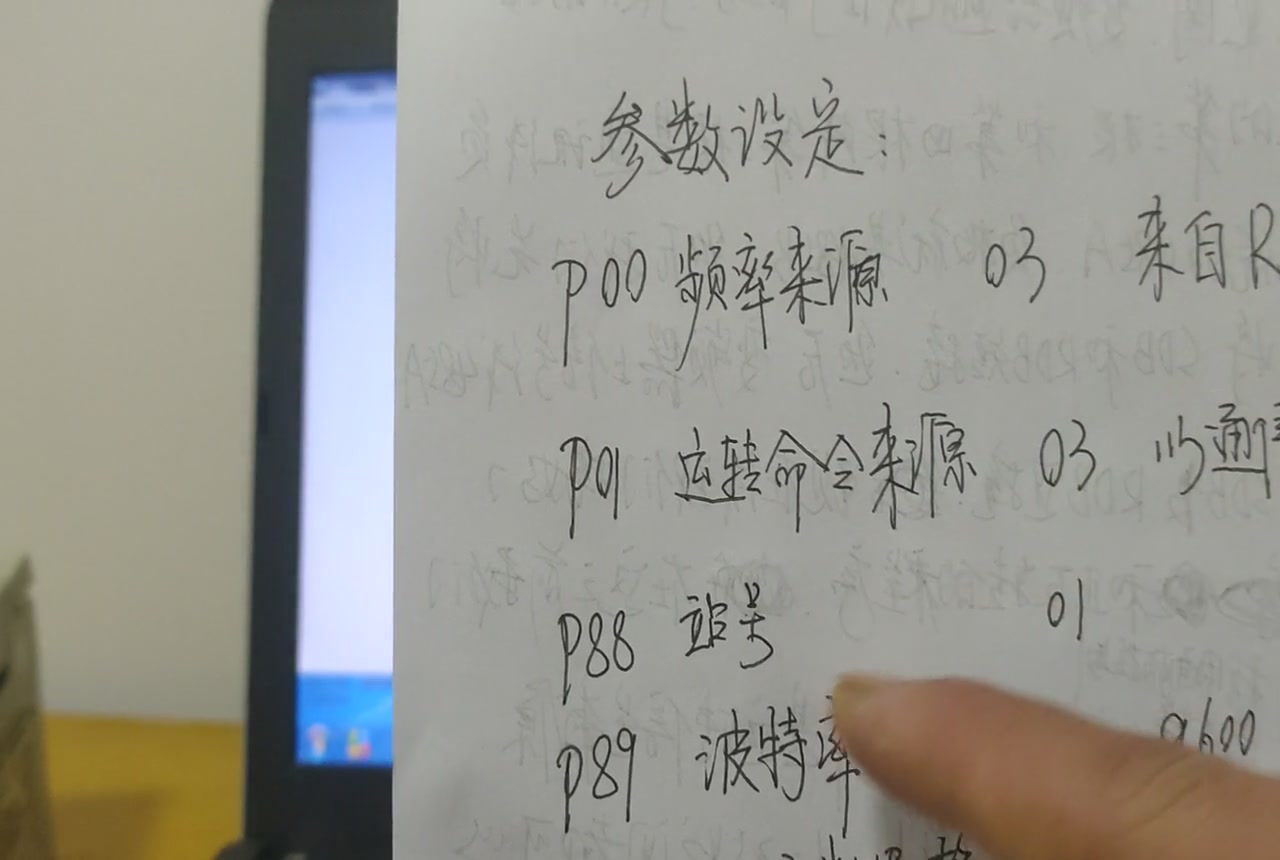 参数设定:
P00 频率来源 03 来自R
P01 运转命令来源 03 以通
P88 站号 01
P89 波特率 9600